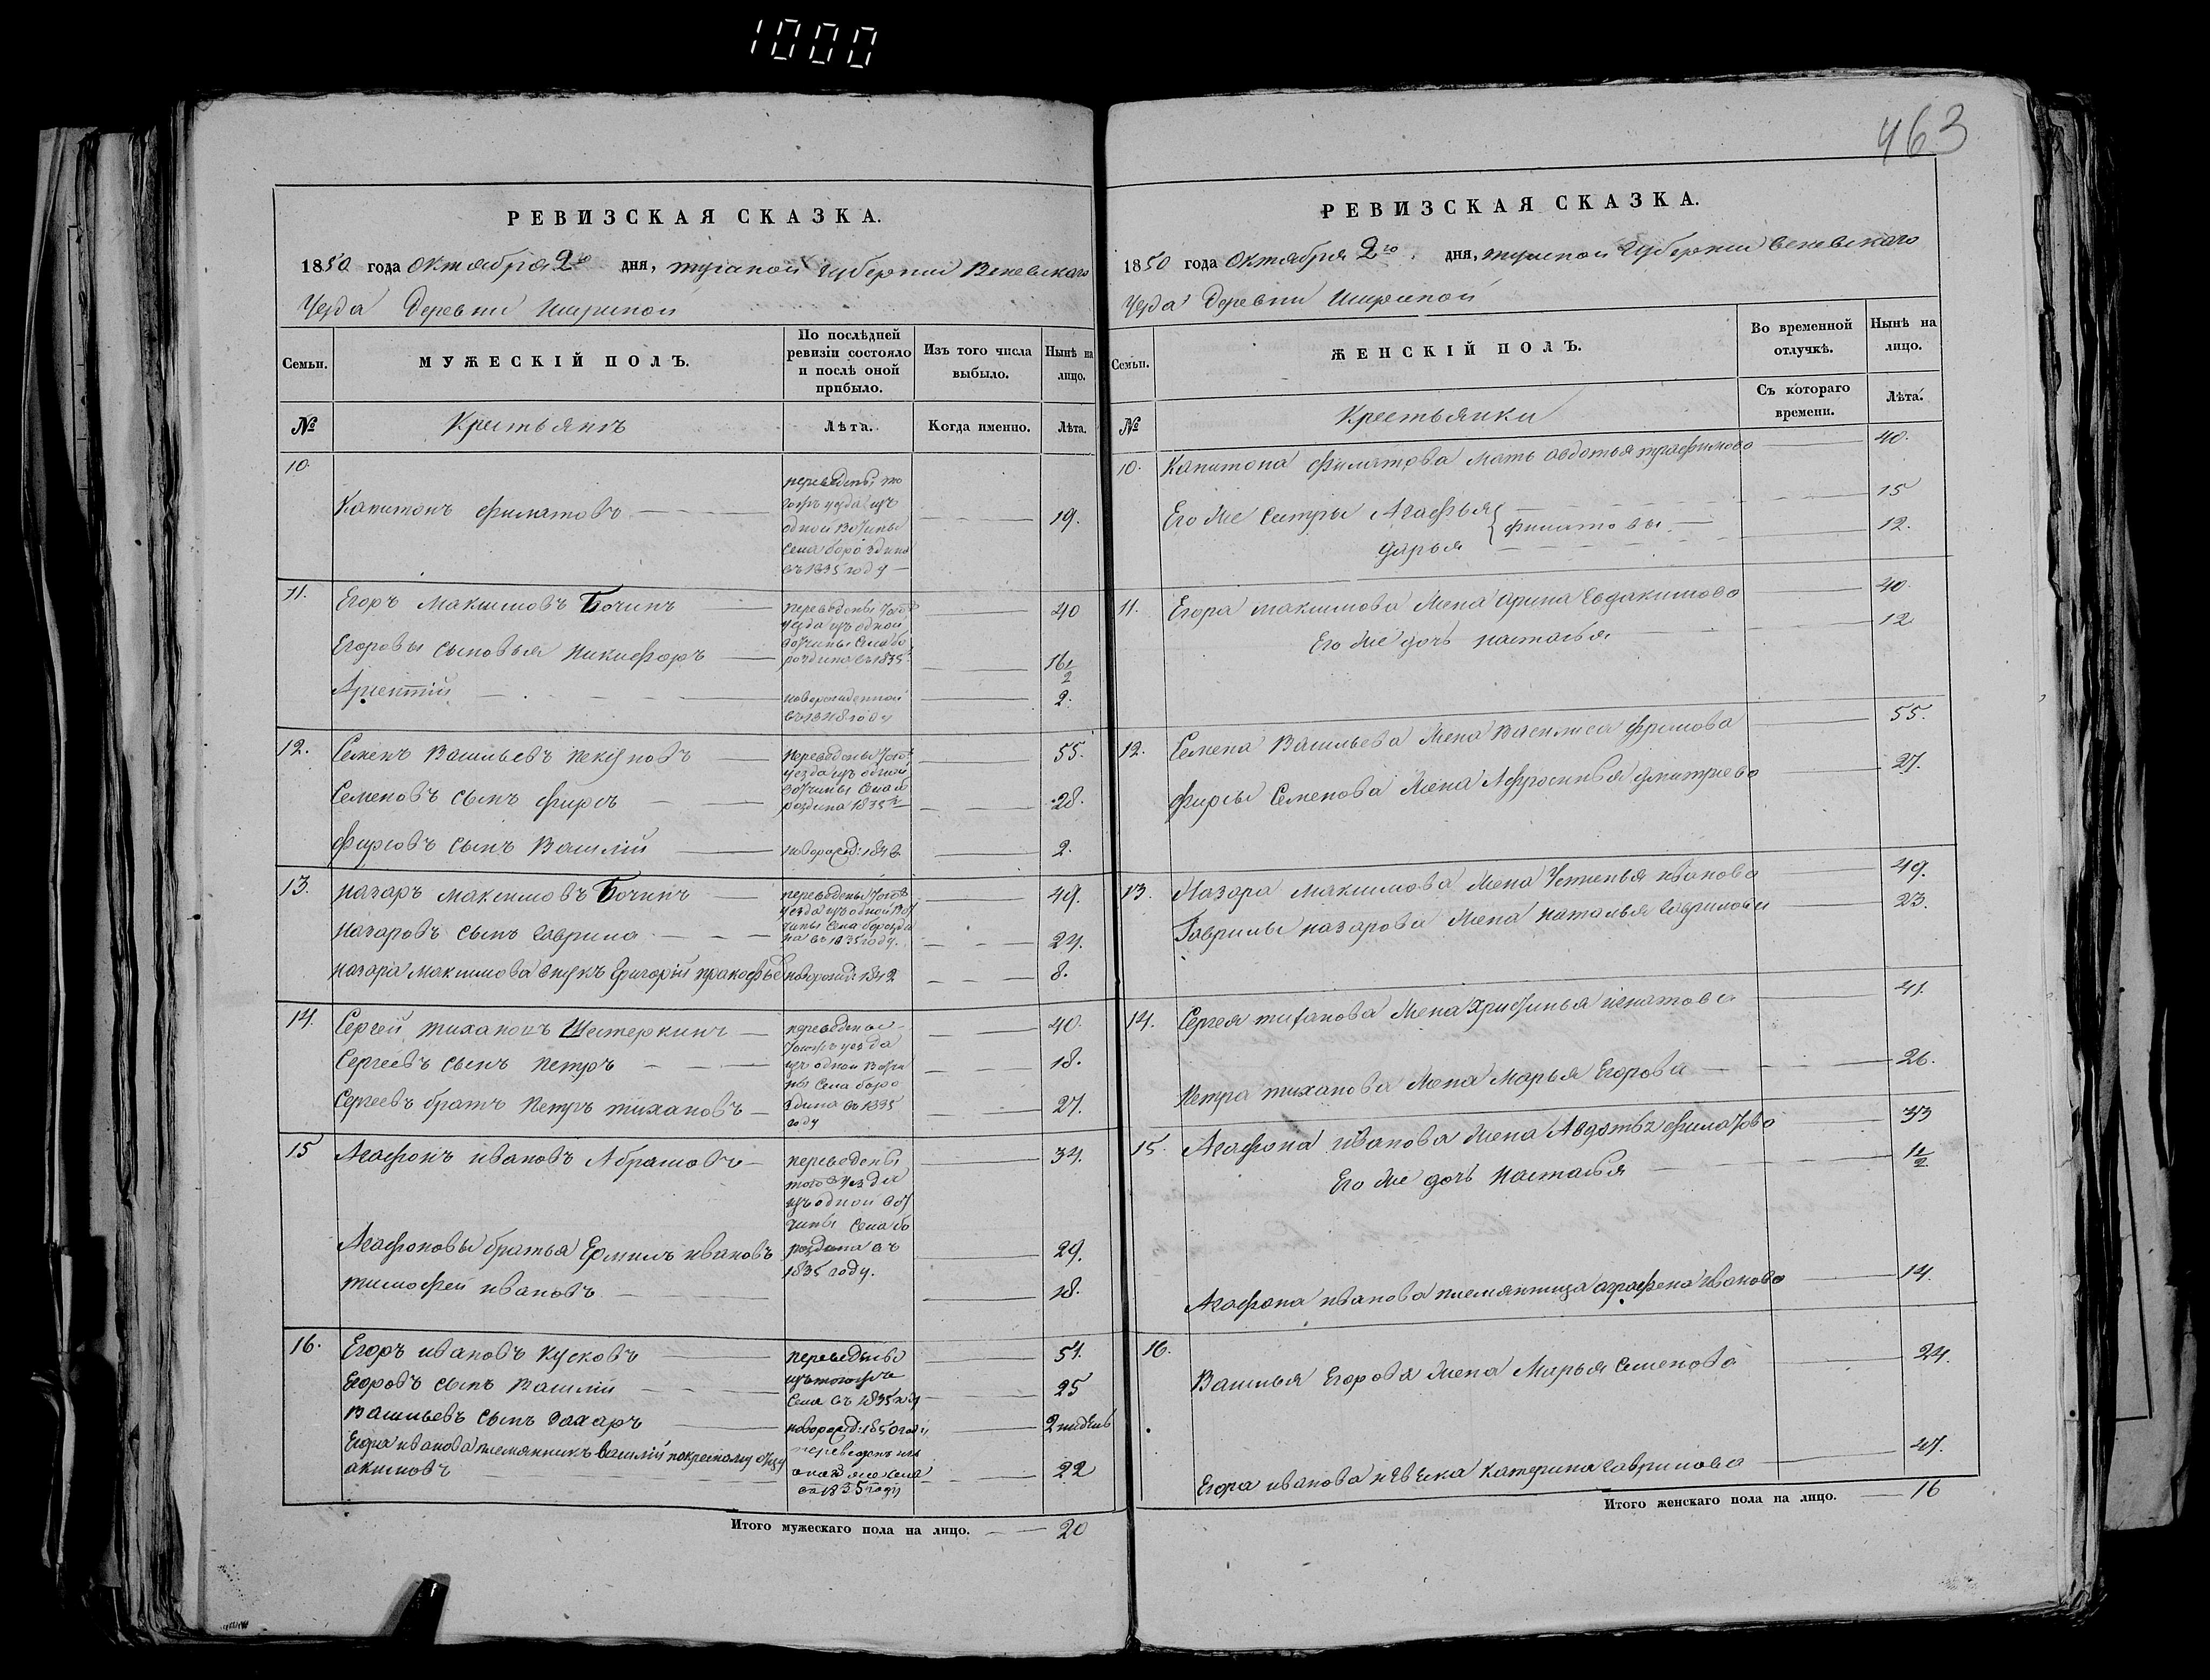 1000
463
РЕВИЗСКАЯ СКАЗКА.
1850 года Октября 2го дня, тульской губернии Веневскаго
Уезда Деревни Ширшной
Семьи.
МУЖЕСКІЙ ПОЛЪ.
По послѣдней ревизіи состояло и послѣ оной прибыло.
Изъ того числа выбыло.
Нынѣ на лицо.
№
Крестьянъ
Лѣта.
Когда именно.
Лѣта.
10.
Капитонъ филатовъ
переведены то
гожъ уезда изъ
одной вотчины
села бороздина
въ 1835 году
19.
11.
Егоръ максимовъ Бочинъ
переведены тогожъ
уезда изъ одной
вотчины села бо
роздина въ 1835
40
Егоровы сыновья никифоръ
16 1/2
Арсентій
новорожденной
въ 1848 году
2.
12.
Семенъ Васильевъ пекуновъ
переведены тогожъ
уезда изъ одной
вотчины села бо
роздина 1835
55.
Семеновъ сынъ фирсъ
28.
фирсовъ сынъ Василій
новорожд: 1848
2.
13.
назаръ максимовъ Бочинъ
переведены тогожъ
уезда изъ одной вот
чины села борозди
на въ 1835 году.
49.
назаровъ сынъ гаврила
24.
назара максимова внукъ Григорій пракофьевъ
новорожд: 1842
8.
14.
Сергей тихановъ Шестеркинъ
переведены
тогожъ уезда
изъ одной вотчи
ны села боро
здина въ 1835
году
40.
Сергеевъ сынъ петръ
18.
Сергеевъ братъ петръ тихановъ
27.
15
Агафонъ ивановъ Абрамовъ
переведены
тогожъ уезда
изъ одной вот
чины села бо
роздина въ
1835 году.
34.
Агафоновы братья Ермилъ ивановъ
29.
тимофей ивановъ
18.
16.
Егоръ ивановъ кусковъ
переведены
изъ тогожъ
села въ 1835 году
51.
Егоровъ сынъ Василій
25
Васильевъ сынъ Захаръ
новорожд: 1850 году
2 недель
Егора иванова племянникъ василій покресному отцу
акимовъ
переведенъ изъ
онаго же села
въ 1835 году
22
Итого мужескаго пола на лицо. 20
РЕВИЗСКАЯ СКАЗКА.
1850 года Октября 2го дня, тульской губернии веневскаго
Уезда Деревни Ширшной
Семьи.
ЖЕНСКІЙ ПОЛЪ.
Во временной отлучкѣ.
Нынѣ на лицо.
№
Крестьянки
Съ котораго времени.
Лѣта.
10.
Капитона филатова мать авдотья трафимова
40.
Его же сестры Агафья
15
дарья
филатовы
12.
11.
Егора максимова жена арина евдакимова
40.
Его же дочь настасья
12
12.
Семена Васильева жена Василиса фролова
55.
фирсы Семенова жена Афросинья дмитриева
27.
13.
Назара максимова жена Устинья иванова
49.
Гаврилы назарова жена наталья гаврилова
23.
14.
Сергея тиханова жена Христинья игнатова
41.
петра тиханова жена марья Егорова
26.
15.
Агафона иванова жена Авдотья филатова
33
Его же дочь настасья
1 1/2
Агафона иванова племянница аграфена иванова
14.
16.
Василья Егорова жена Марья семенова
24.
Егора иванова невѣска катерина гаврилова
47.
Итого женскаго пола на лицо. 16